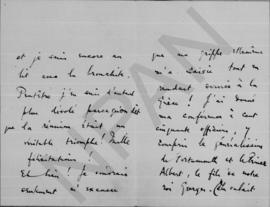 et je suis encore au
lit avec la bronchite.
Peut-être j'en suis d'autant
plus désolé parce que on dit
que la réunion était un
véritable triomphe! Mille
félicitations!
Eh bien! Je voudrais
seulement m'excuser
que ma grippe
m'a laissé tout en
rendant service à la
Grèce! J'ai donné
ma conférence à cent
cinquante officiers, y
compris le généralissime
de Portsmouth et le Prince
Albert, le fils de notre
roi Georges. (On voulait